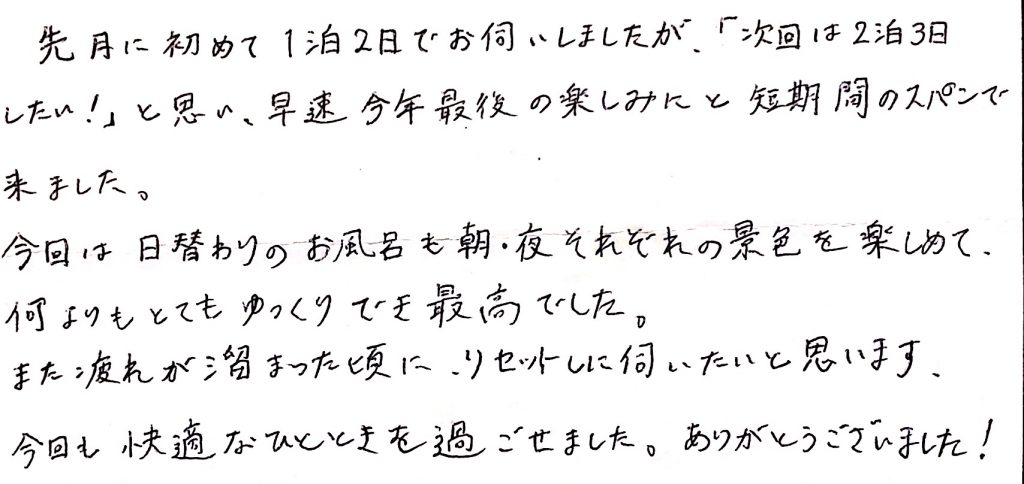 先月に初めて1泊2日でお伺いしましたが、「次回は2泊3日
したい!」と思い、早速今年最後の楽しみにと短期間のスパンで
来ました。
今回は日替わりのお風呂も朝・夜それぞれの景色を楽しめて、
何よりもとてもゆっくりでき最高でした。
また疲れが溜まった頃に、リセットしに伺いたいと思います、
今回も快適なひとときを過ごせました。ありがとうございました!